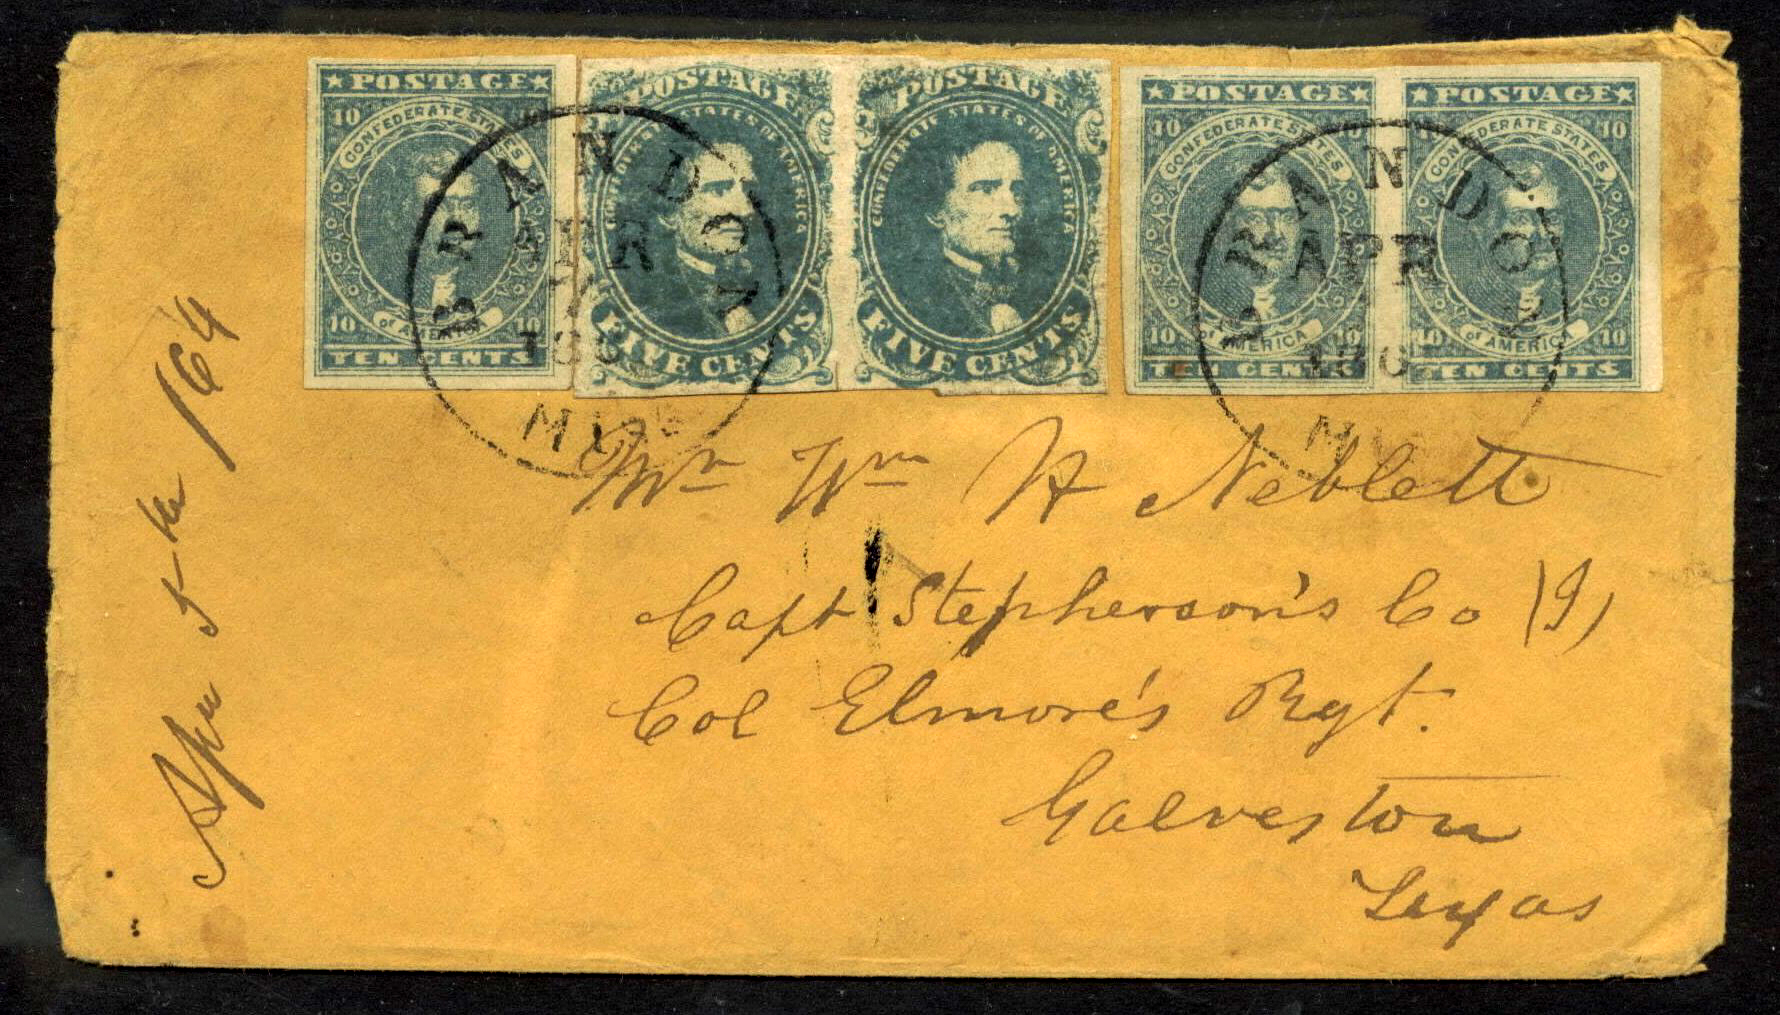 ★POSTAGE★
10
CONFEDERATE STATES
10 10
of AMERICA
TEN CENTS
POSTAGE
CONFEDERATE STATES OF AMERICA
FIVE CENTS
POSTAGE
CONFEDERATE STATES OF AMERICA
FIVE CENTS
★POSTAGE★
10
CONFEDERATE STATES
10
of AMERICA
TEN CENTS
★POSTAGE★
10
CONFEDERATE STATES
10 10
of AMERICA
TEN CENTS
BRANDON
APR
186
MISS
BRANDON
APR
186
MI
Mr Wm H Neblett
Capt Stepherson's Co (I)
Col Elmore's Rgt.
Galveston
Texas
5th /64